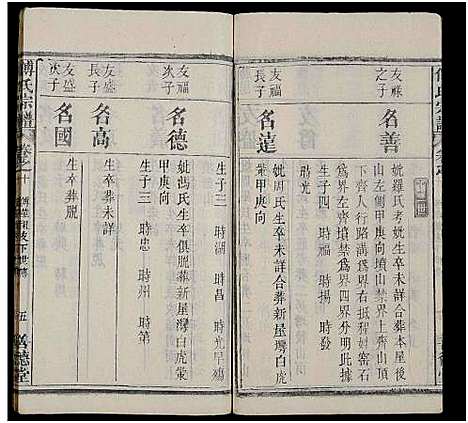 友祿
之子
名善
妣羅氏考妣生卒未詳合葬本屋後
山左側甲庚向墳山禁界上齊山頂
下齊人行路溝為界右抵程姓窰石
為界左齊墳禁為界四界分明此據
時福 時揚 時發
友福
長子
名達
妣周氏生卒未詳合葬新屋灣白虎
嘴甲庚向
生子一 時光
友福
次子
名德
妣馮氏生卒俱羆葬新屋灣白虎嘴
甲庚向
生子三 時湖 時昌 時光早殤
友盛
長子
名高
生卒葬未詳
生子三 時忠 時州 時第
友盛
次子
名國
生卒葬羆
傅氏宗譜
五
敦德堂